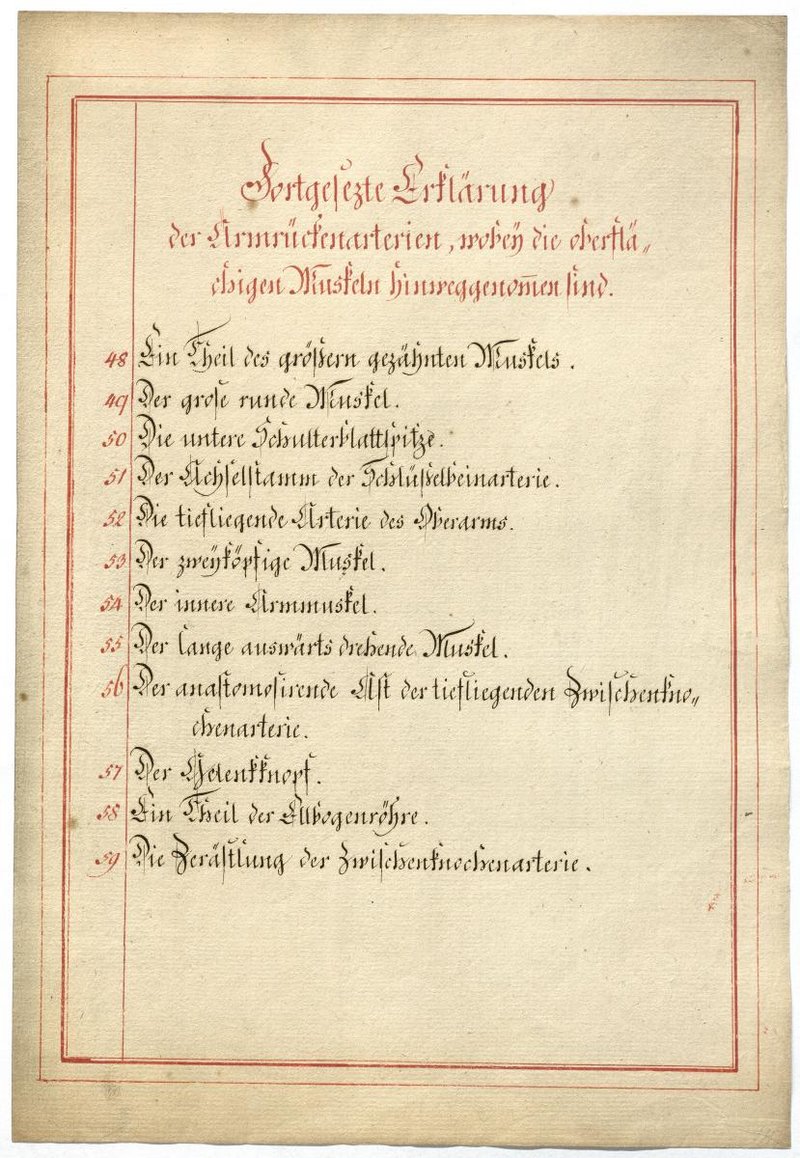 Fortgesezte Erklärung
der Armrückenarterien, wobeÿ die oberflä„
chigen Muskeln hinweggenom̅en sind.
48 Ein Theil des größern gezähnten Muskels.
49 Der grose runde Muskel.
50 Die untere Schulterblattspitze.
51 Der Achselstamm der Schlüßelbeinarterie.
52 Die tiefliegende Arterie des Oberarms.
53 Der zweÿköpfige Muskel.
54 Der innere Armmuskel.
55 Der lange auswärts drehende Muskel.
56 Der anastomosirende Ast der tiefliegenden Zwischenkno„
chenarterie.
57 Der Gelenkknopf.
58 Ein Theil der Ellbogenröhre.
59 Die Zerästlung der Zwischenknochenarterie.